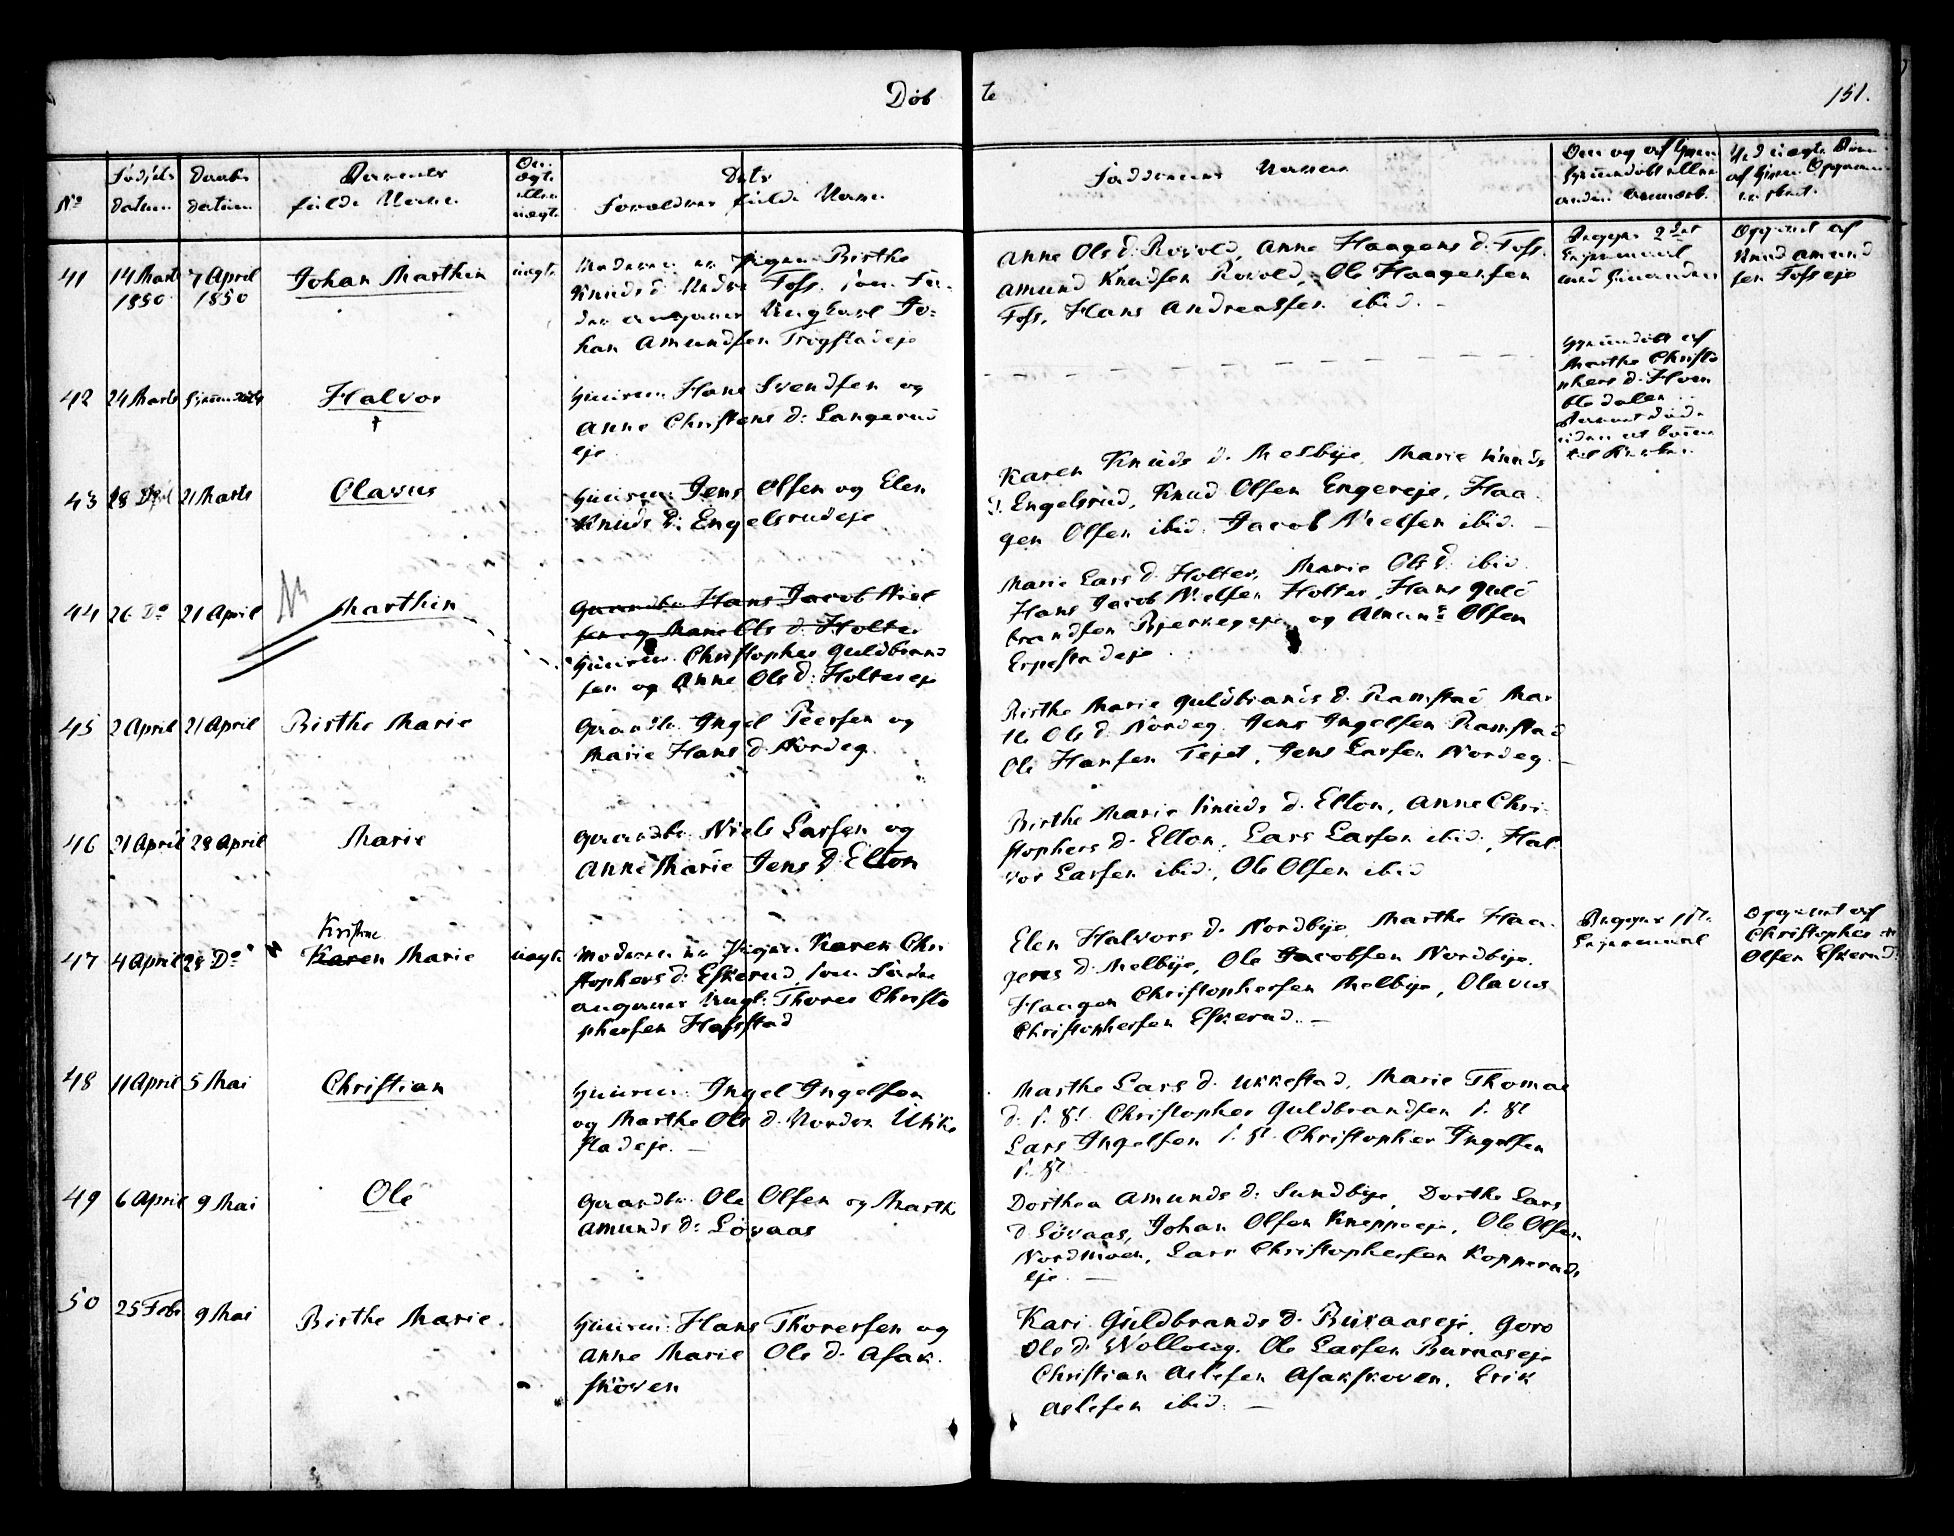 Døb te 151.
No
Fødsels datum
Daabs datum
Barnets fulde Navn
Om ægte eller uægte
Dets Forældres fulde Navne
Faddernes Navne
Om og af hvem hjemmedøbt eller
41 14 Marts 1850 7 April 1850 Johan Marthin uægte
Moderen er Pigen Birthe
Knuds d: Nedre Foss. som Fa-
der angaves Ungkarl Jo-
han Amundsen Trøgstadeje
Anne Ols d. Rovold, Anne Haagens d. Foss.
Amund Knudsen Rovold, Ole Haagensen
Foss, Hans Andreassen ibid. -
Begges 2det
Leiermaal
med hinanden
Opgivet af
Knud Amund
sen Fosseje
42 24 Marts Halvor
†
Huusm: Hans Svendsen og
Anne Christens d: Langerud
eje
Hjemmedøbt af
Marthe Christo
phers d.
dalen
Barnet døde
43 21 Marts Olavus
Huusm: Jens Olsen og Elen
Knuds d: Engelsrudeje
Karen Knuds d. Melbye, Marie Knuds
d. Engelsrud, Knud Olsen Engereje, Haa-
gen Olsen ibid. Jacob Nielsen ibid. -
44 26 Do 21 April Marthin
Gaardbr. Hans Jacob Niel
sen og Marie Ols d. Holter
Huusm. Christopher Guldbrand
sen og Anne Ols d: Holtereje
Marie Lars d. Holter, Marie Ols d. ibid.
Hans Jacob Nielsen Holter, Hans Guld
brandsen og Amund Olsen
Erpestadeje
45 2 April 21 April Birthe Marie
Gaardb: Ingel Peersen og
Marie Hans d. Nordeg.
Birthe Marie Guldbrands d. Ramstad Mar
the Ols d. Nordeg. Jens Ingelsen Ramstad
Ole Hansen Tejet, Jens Larsen Nordeg. -
46 21 April 28 April Marie
Gaardbr. Niels Larsen og
Anne Marie Jens d. Elton
Birthe Marie Knuds d. Elton, Anne Chri-
stophers d. Elton, Lars Larsen ibid., Hal-
vor Larsen ibid., Ole Olsen ibid
47 4 April 28 Do
Kristine
Karen Marie uægte
Moderen er Pigen Karen Chri
stophers d: Eskerud, som Fader
angaves Ungk: Thores Christo
phersen Hafstad
Elen Halvors d. Nordbye, Marthe Haa-
gens d. Melbye, Ole Jacobsen Nordbye.
Haagen Christophersen Melbye, Olavus
Christophersen Eskerud. -
Begges 1ste
Leiermaal
Opgivet af
Christopher
Olsen Eskerud
48 11 April 5 Mai Christian
Huusm: Ingel Ingelsen
og Marthe Ols d. Nordre Ukke
stadeje. -
Marthe Lars d. Ukkestad, Marie Thomas
d. s. St. Christopher Guldbrandsen s. St
Lars Ingelsen s. St. Christopher Ingelsen
s. St
49 6 April 9 Mai Ole
Gaardbr. Ole Olsen og Marthe
Amunds d: Løvaas
Dorthea Amunds d: Sundbye, Dorthe Lars
d Løvaas, Johan Olsen Kneppeeje, Ole Olsen
Nordmoen, Lars Christophersen Kopperuds
eje. -
50 25 Febr 9 Mai Birthe Marie.
Huusm: Hans Thoresen og
Anne Marie Ols d. Asak-
skoven
Kari Guldbrands d. Buraaseje, Goro
Ole Larsen Buraaseje
Christian Aslesen Asakskoven, Erik
Aslesen ibid. -